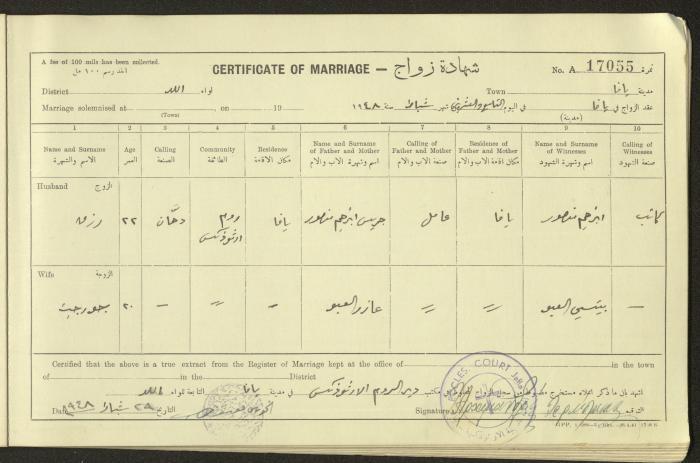 A fee of 100 mils has been collected.
اخذ رسم ١٠٠ مل
CERTIFICATE OF MARRIAGE — شهادة زواج
No. A 17055 نمرة
District لواء اللد
Town مدينة يافا
Marriage solemnised at , on 19
(Town)
عقد الزواج في يافا في اليوم التاسع والعشرين شهر شباط سنة ١٩٤٨
(مدينة)
1 2 3 4 5 6 7 8 9 10
Name and Surname الاسم والشهرة
Age العمر
Calling الصنعة
Community الطائفة
Residence مكان الاقامة
Name and Surname of Father and Mother اسم وشهرة الاب والام
Calling of Father and Mother صنعة الاب والام
Residence of Father and Mother مكان اقامة الاب والام
Name and Surname of Witnesses اسم وشهرة الشهود
Calling of Witnesses صنعة الشهود
Husband الزوج
رزق ٢٢ دهّان روم ارثوذكس يافا جريس ابرهيم منصور عامل يافا ابرهيم منصور كاتب
Wife الزوجة
جورجيت ٢٠ — 〃 — عازر العبو 〃 〃 العبو —
Certified that the above is a true extract from the Register of Marriage kept at the office of in the town
of in the District
اشهد بان ما ذكر اعلاه مستخرج من سجل الزواج المحفوظ في مكتب دير الروم الارثوذكس في مدينة يافا التابعة للواء اللد
Date ٢٩ شباط ٩٤٨ التاريخ
Signature التوقيع